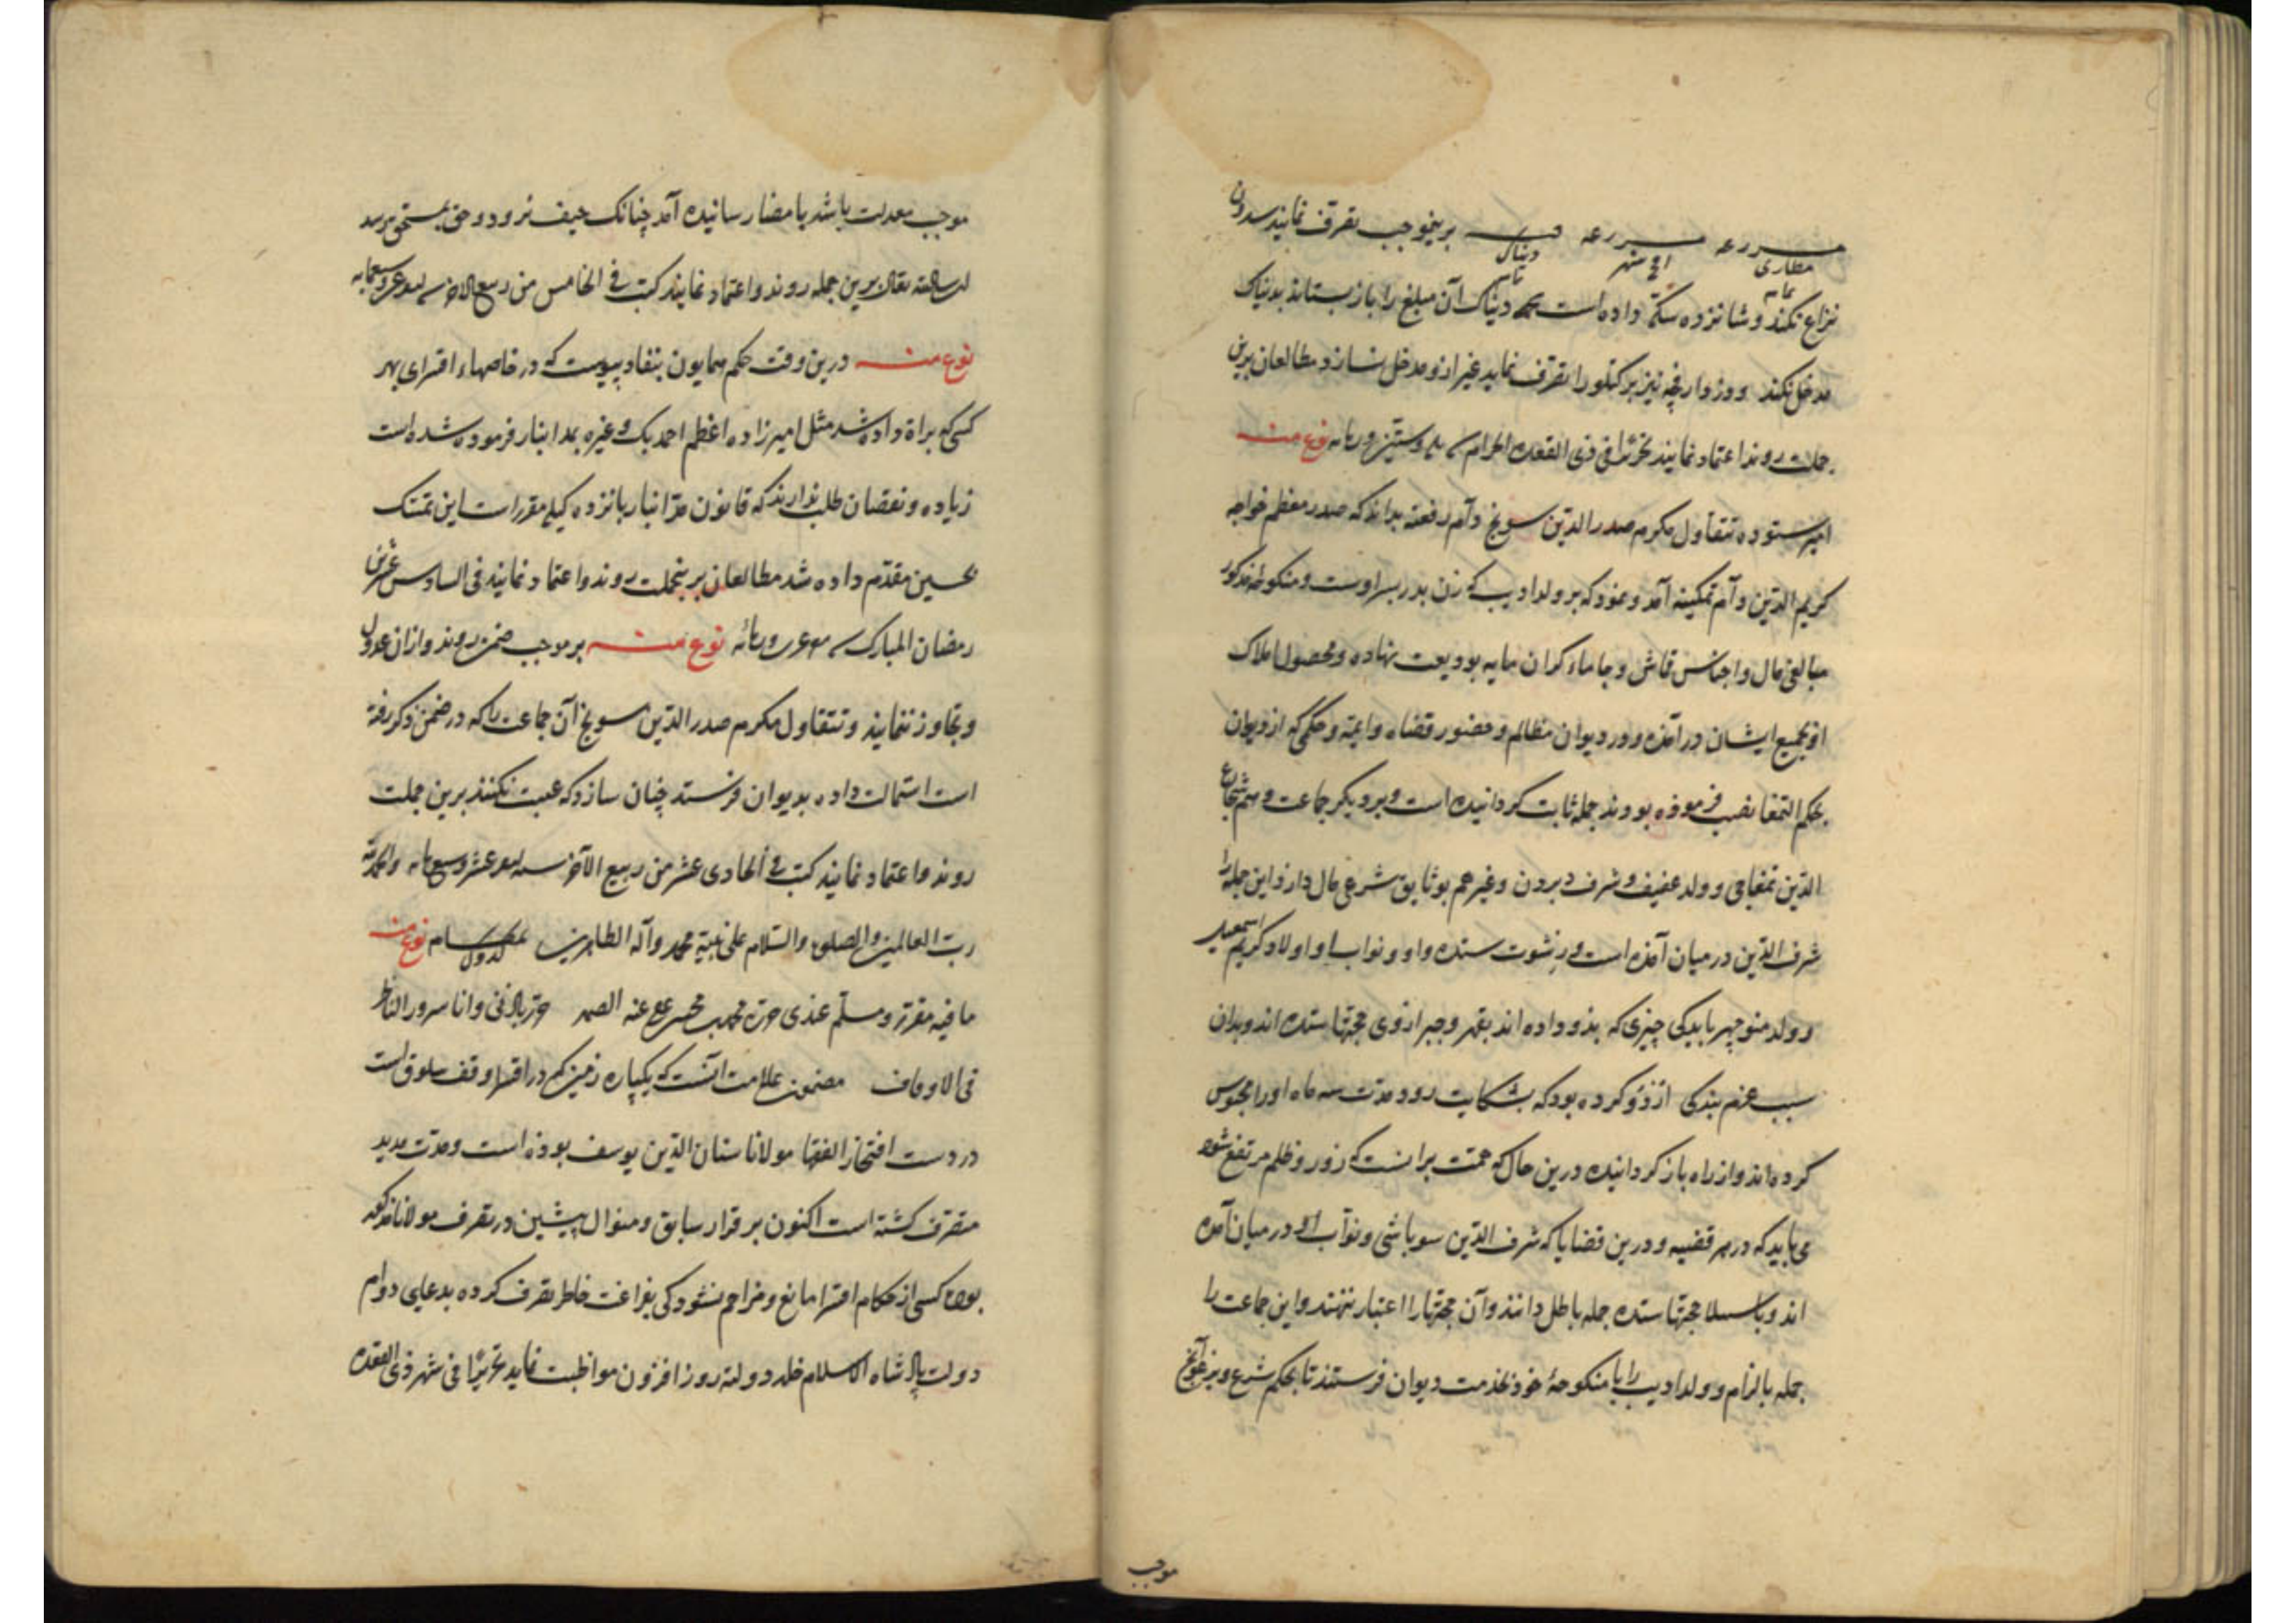 مزرعه مزرعه ده برینموجب تصرف نمایند
مطاری اخ شهر دیناک
تمام
نزاع نکنند و شانزده سکه داده است دیناک آن مبلغ را باز ستاند بدیناک
مدخل نکنند و تصرف نماید غیر ازو مدخل نسازد مطالعان برین
جملت روند اعتماد نمایند تحریرا فی ذی القعده الحرام نوع منه
امیر ستوده تتقاول مکرم صدر الدین سونج دام رفعته بداند که صدر معظم خواجه
کریم الدین دام تمکینه آمد و نمود که بر ولد ادیب که زن پدر پسر اوست و منکوحۀ مذکور
مبالغی مال و اجناس قماش و جامهاء کران مایه بودیعت نهاده و محصول املاک
او بجمیع ایشان در آمده و در دیوان مظالم و حضور قضاه و ایمه و حکمی که از دیوان
بحکم التمغا نصب فرموده بودند جمله ثابت کردانیده است و بر دیکر جماعت
الدین تمغاجی و ولد عفیف و شرف و غیرهم بوثایق شرعی مال دارد این جمله را
شرف الدین در میان آمده است و رشوت ستده و او و نواب او و اولاد کریم اسمعیل
و ولد منوچهر بابکی چیزی که بذو داده اند بقهر و جبر ازوی حجتها ستده اند و بدان
سبب عزم بندکی اردو کرده بود که بشکایت رود مدت سه ماه او را محبوس
کرده اند و از راه باز کردانیده درین حال که همت برانست که زور و ظلم مرتفع شود
می باید که در هر قضیه و درین قضایا که شرف الدین سوباشی و نواب او در میان آمده
اند و حجتها ستده جمله باطل دانند و آن حجتها را اعتبار ننهند و این جماعت را
جمله بالزام و ولد ادیب را با منکوحۀ خود بخدمت دیوان فرستند تا بحکم شرع و یرغو آنچ
موجب
موجب معدلت باشد بامضا رسانیده آمد چنانک حیف نرود و حق بمستحق برسد
ان شاء الله تعالی برین جمله روند و اعتماد نمایند کتب فی الخامس من ربیع الاخر
نوع منه درین وقت حکم همایون بنفاذ پیوست که در خاصهاء اقسرای بهر
کسی که براة داده شد مثل امیرزاده اعظم احمد بک و غیره بمد انبار فرموده شده است
زیاده و نقصان طلب ندارند که قانون مد انبار پانزده کیله مقررات این تمسک
بحسین مقدم داده شد مطالعان برینجملت روند و اعتماد نمایند فی السادس عشر من
رمضان المبارک نوع منه بر موجب ضمن روند و ازان عدول
و تجاوز ننمایند و تتقاول مکرم صدر الدین سونج آن جماعت را که در ضمن ذکر رفته
است استمالت داده بدیوان فرستد چنان سازد که غیبت نکنند برین جملت
روند و اعتماد نمایند کتب فی الحادی عشر من ربیع الآخر والحمد لله
رب العالمین والصلوة والسلام علی نبیه محمد وآله الطاهرین نوع منه
ما فیه مقرر و مسلم عندی حرره
فی الاوقاف مضمون علامت آنست که یکپاره زمین کم در اقسرا وقف سلوق است
در دست افتخار الفقها مولانا سنان الدین یوسف بوده است و مدت مدید
متصرف کشته است اکنون بر قرار سابق و منوال پیشین در تصرف مولانا مذکور
بوده کسی از حکام اقسرا مانع و مزاحم نشود کی بفراغت خاطر تصرف کرده بدعای دوام
دولت پادشاه اسلام خلد دولته روز افزون مواظبت نماید تحریرا فی شهر ذی القعده